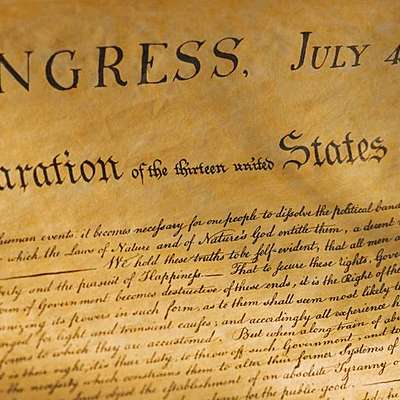 NGRESS, JULY 4
aration of the thirteen united States
human events it becomes necessary for one people to dissolve the political band
which the Laws of Nature and of Nature's God entitle them, a decent
We hold these truths to be self-evident, that all men a
erty and the pursuit of Happiness.— That to secure these rights, Gover
rm of Government becomes destructive of these ends, it is the Right of the
anizing its powers in such form, as to them shall seem most likely to
for light and transient causes; and accordingly all experience h
forms to which they are accustomed. But when a long train of ab
is their right, it is their duty, to throw off such Government, and to
the necessity which constrains them to alter their former Systems of
object the establishment of an absolute Tyranny o
for the public good.